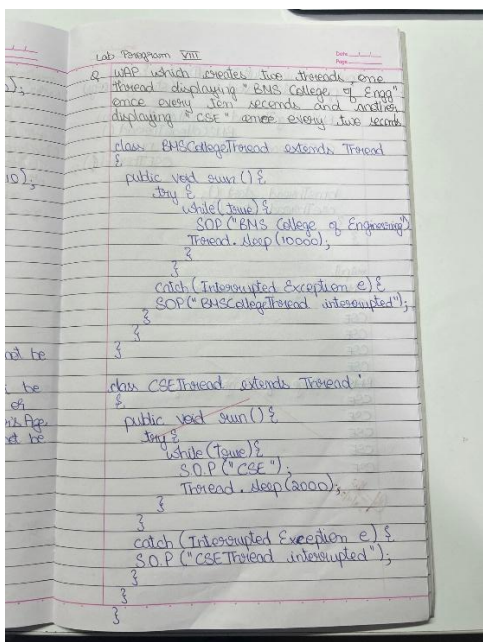 Lab Program VIII
Date
Page
Q WAP which creates two threads, one
thread displaying "BMS College of Engg"
once every ten seconds and another
displaying "CSE" once every two seconds
class BMSCollegeThread extends Thread
{
public void run () {
try {
while (true) {
SOP ("BMS College of Engineering")
Thread. sleep (10000);
}
}
catch (Interrupted Exception e) {
SOP ("BMSCollegeThread interrupted");
}
}
}
class CSEThread extends Thread
{
public void run () {
try {
while (true) {
S.O.P ("CSE");
Thread. sleep (2000);
}
}
catch (Interrupted Exception e) {
S.O.P ("CSEThread interrupted");
}
}
}
);
10);
not be
be
er
Age
not be